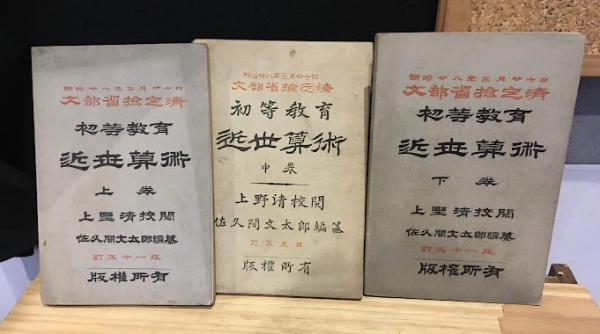 明治廿八年三月廿七日
文部省検定済
初等教育
近世算術
上巻
上野清校閲
佐久間文太郎編纂
訂正十一版
版權所有
明治廿八年三月廿七日
文部省検定済
初等教育
近世算術
中巻
上野清校閲
佐久間文太郎編纂
訂正九版
版權所有
明治廿八年三月廿七日
文部省検定済
初等教育
近世算術
下巻
上野清校閲
佐久間文太郎編纂
訂正十一版
版權所有